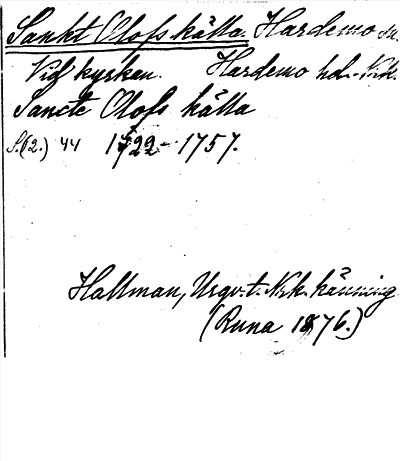 Sankt Olofs källa. Hardemo sn.
Vid kyrkan. Hardemo hd. Nrk.
Sancte Olofs källa
S. (2.) 44 1722-1757.
Hallman, Ursv. t. Nrk. känning
(Runa 1876.)